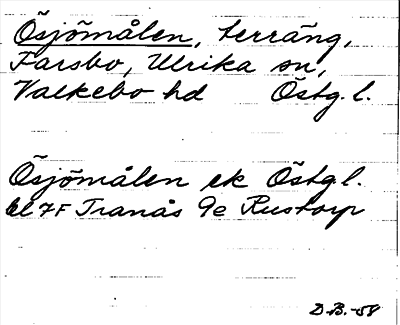 Ösjömålen, terräng,
Farsbo, Ulrika sn,
Valkebo hd Östg. l.
Ösjömålen ek Östg l.
bl 7F Tranås 9e Rustorp
D.B.-58